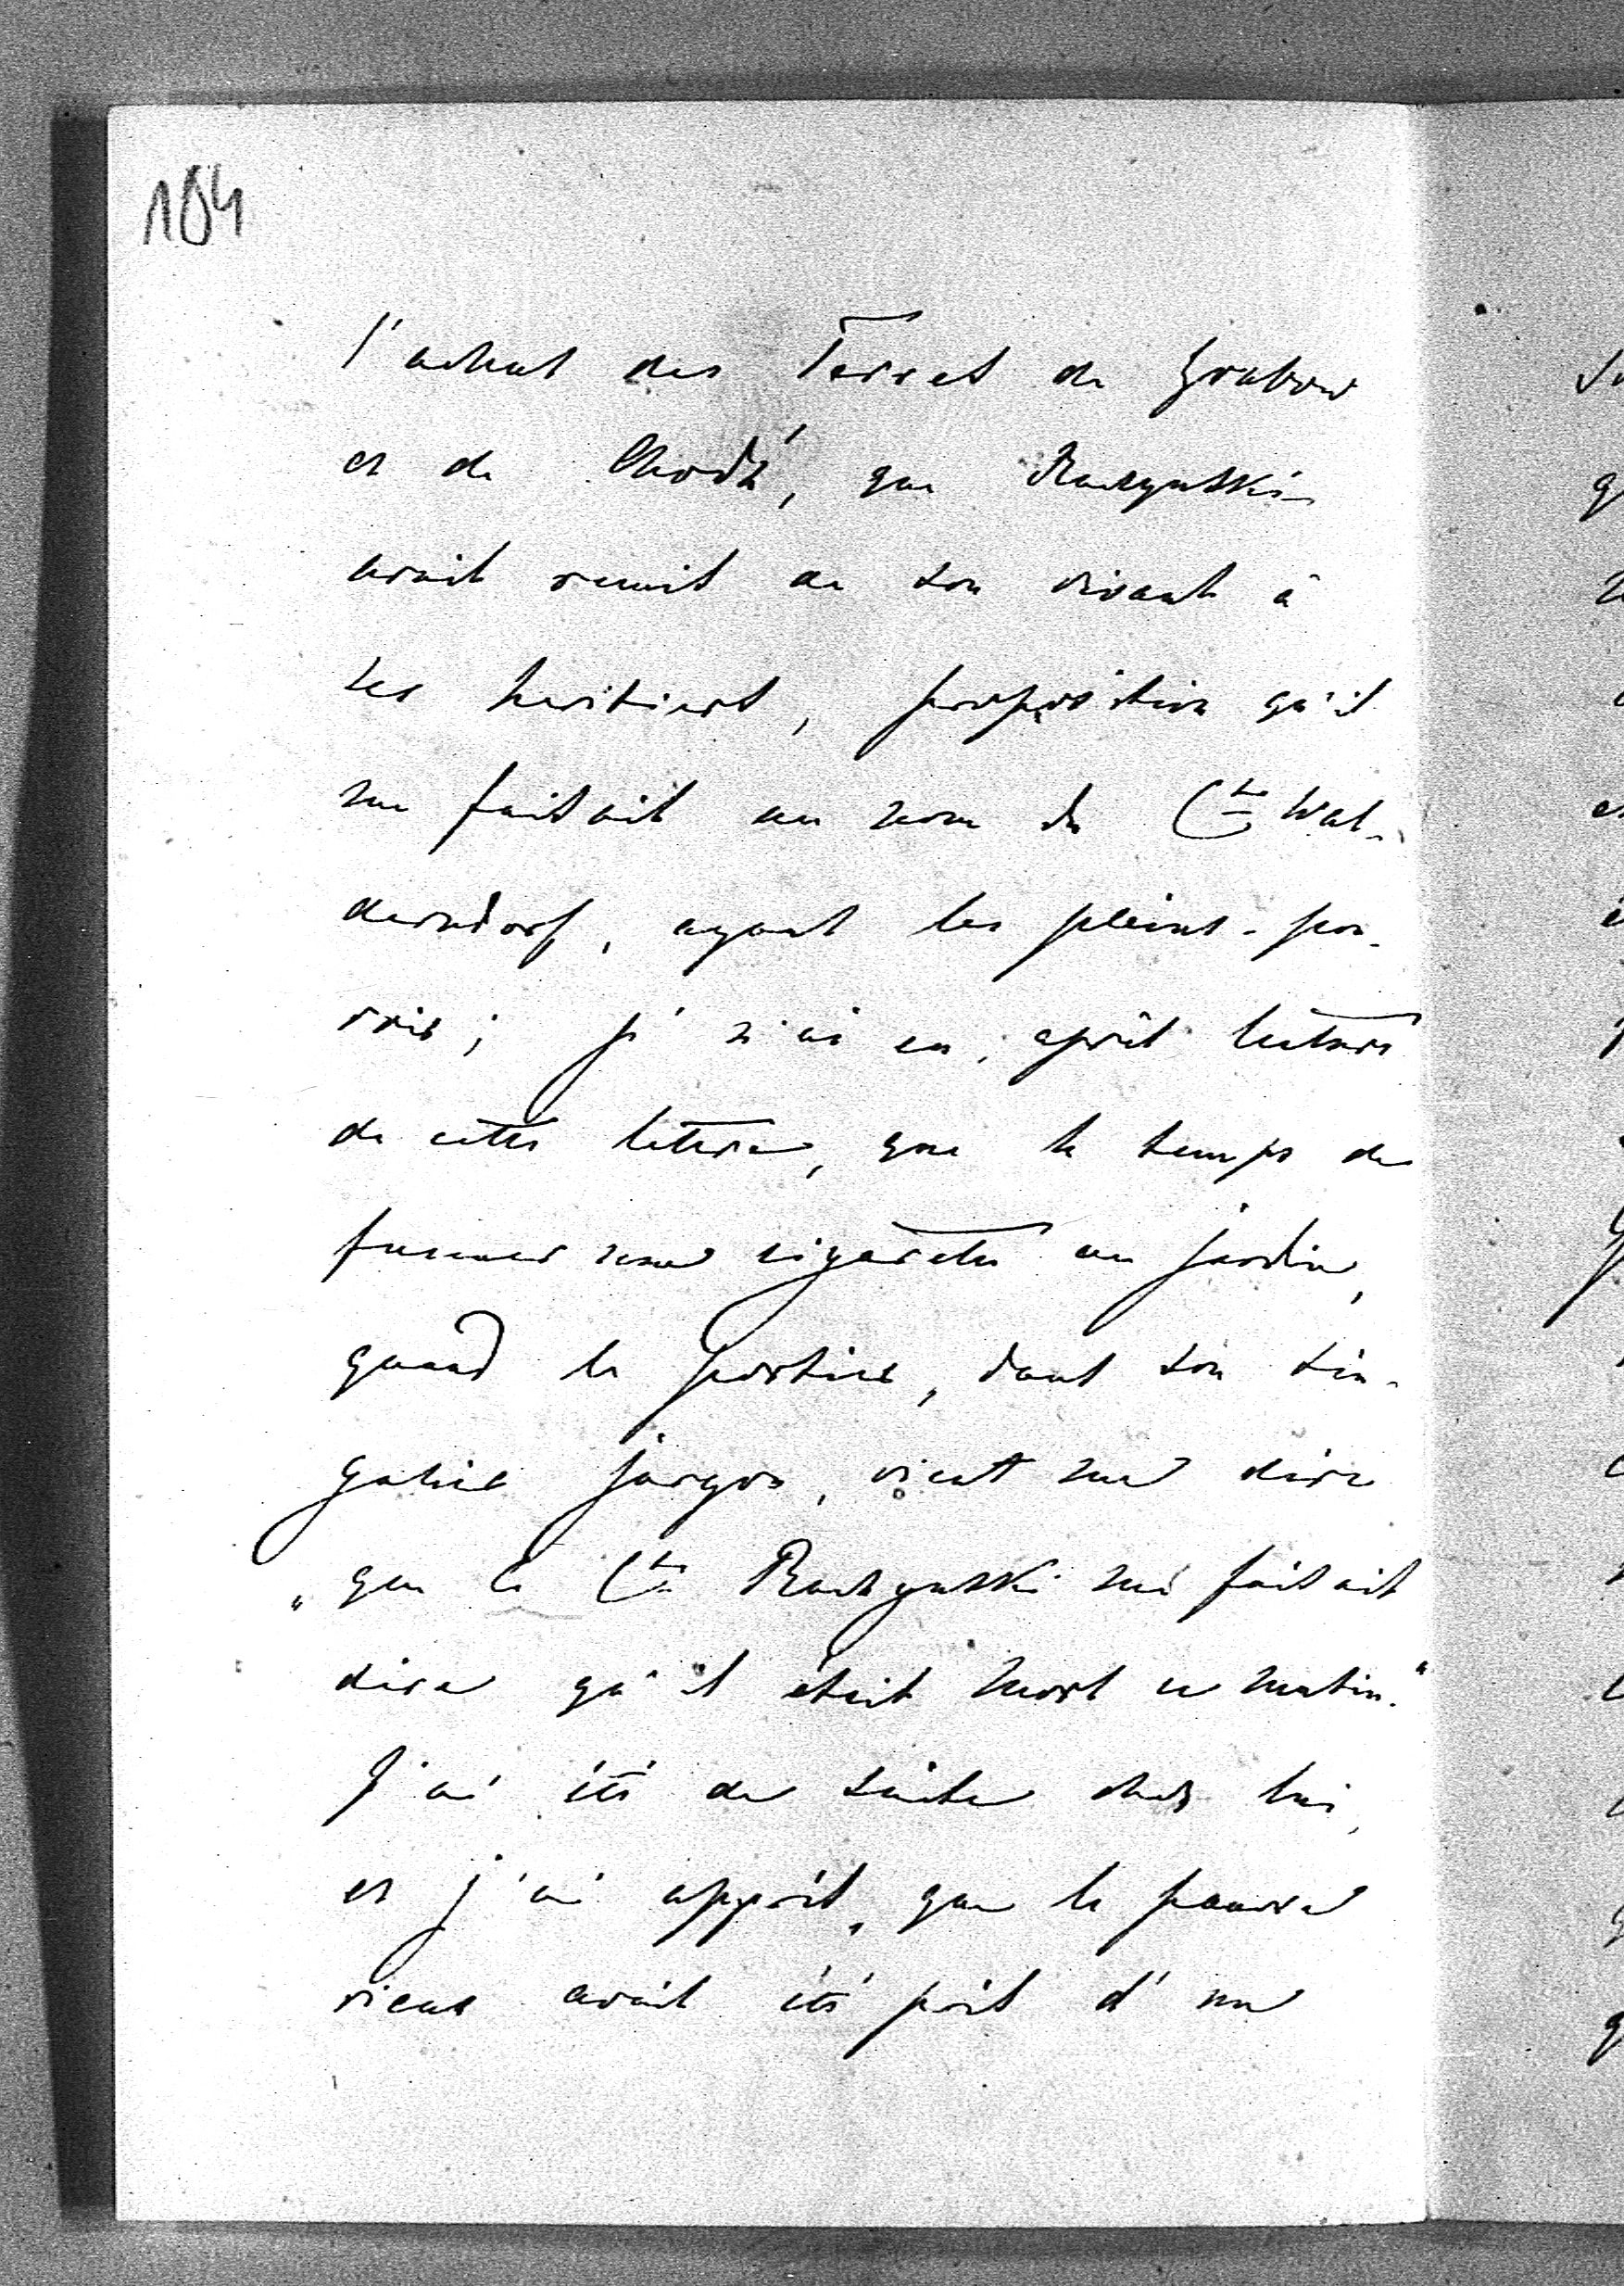 184
l'achat des Terres de Grabow
et de Chodź, que Raczynski
avait remit de son vivant à
ses heritiers, proposition qu'il
me faisait au nom du Cte Wal-
derndorf, ayant les pleins-pou-
voir; je n'ai eu, après lecture
de cette lettre, que le temps de
fumer une cigarette au jardin,
quand le portier, dans son sin-
gulier jargon, vient me dire
„que le Cte Raczynski me faisait
dire qu'il était mort ce matin."
J'ai été de suite chez lui,
et j'ai appris, que le pauvre
vieux avait été pris d'un